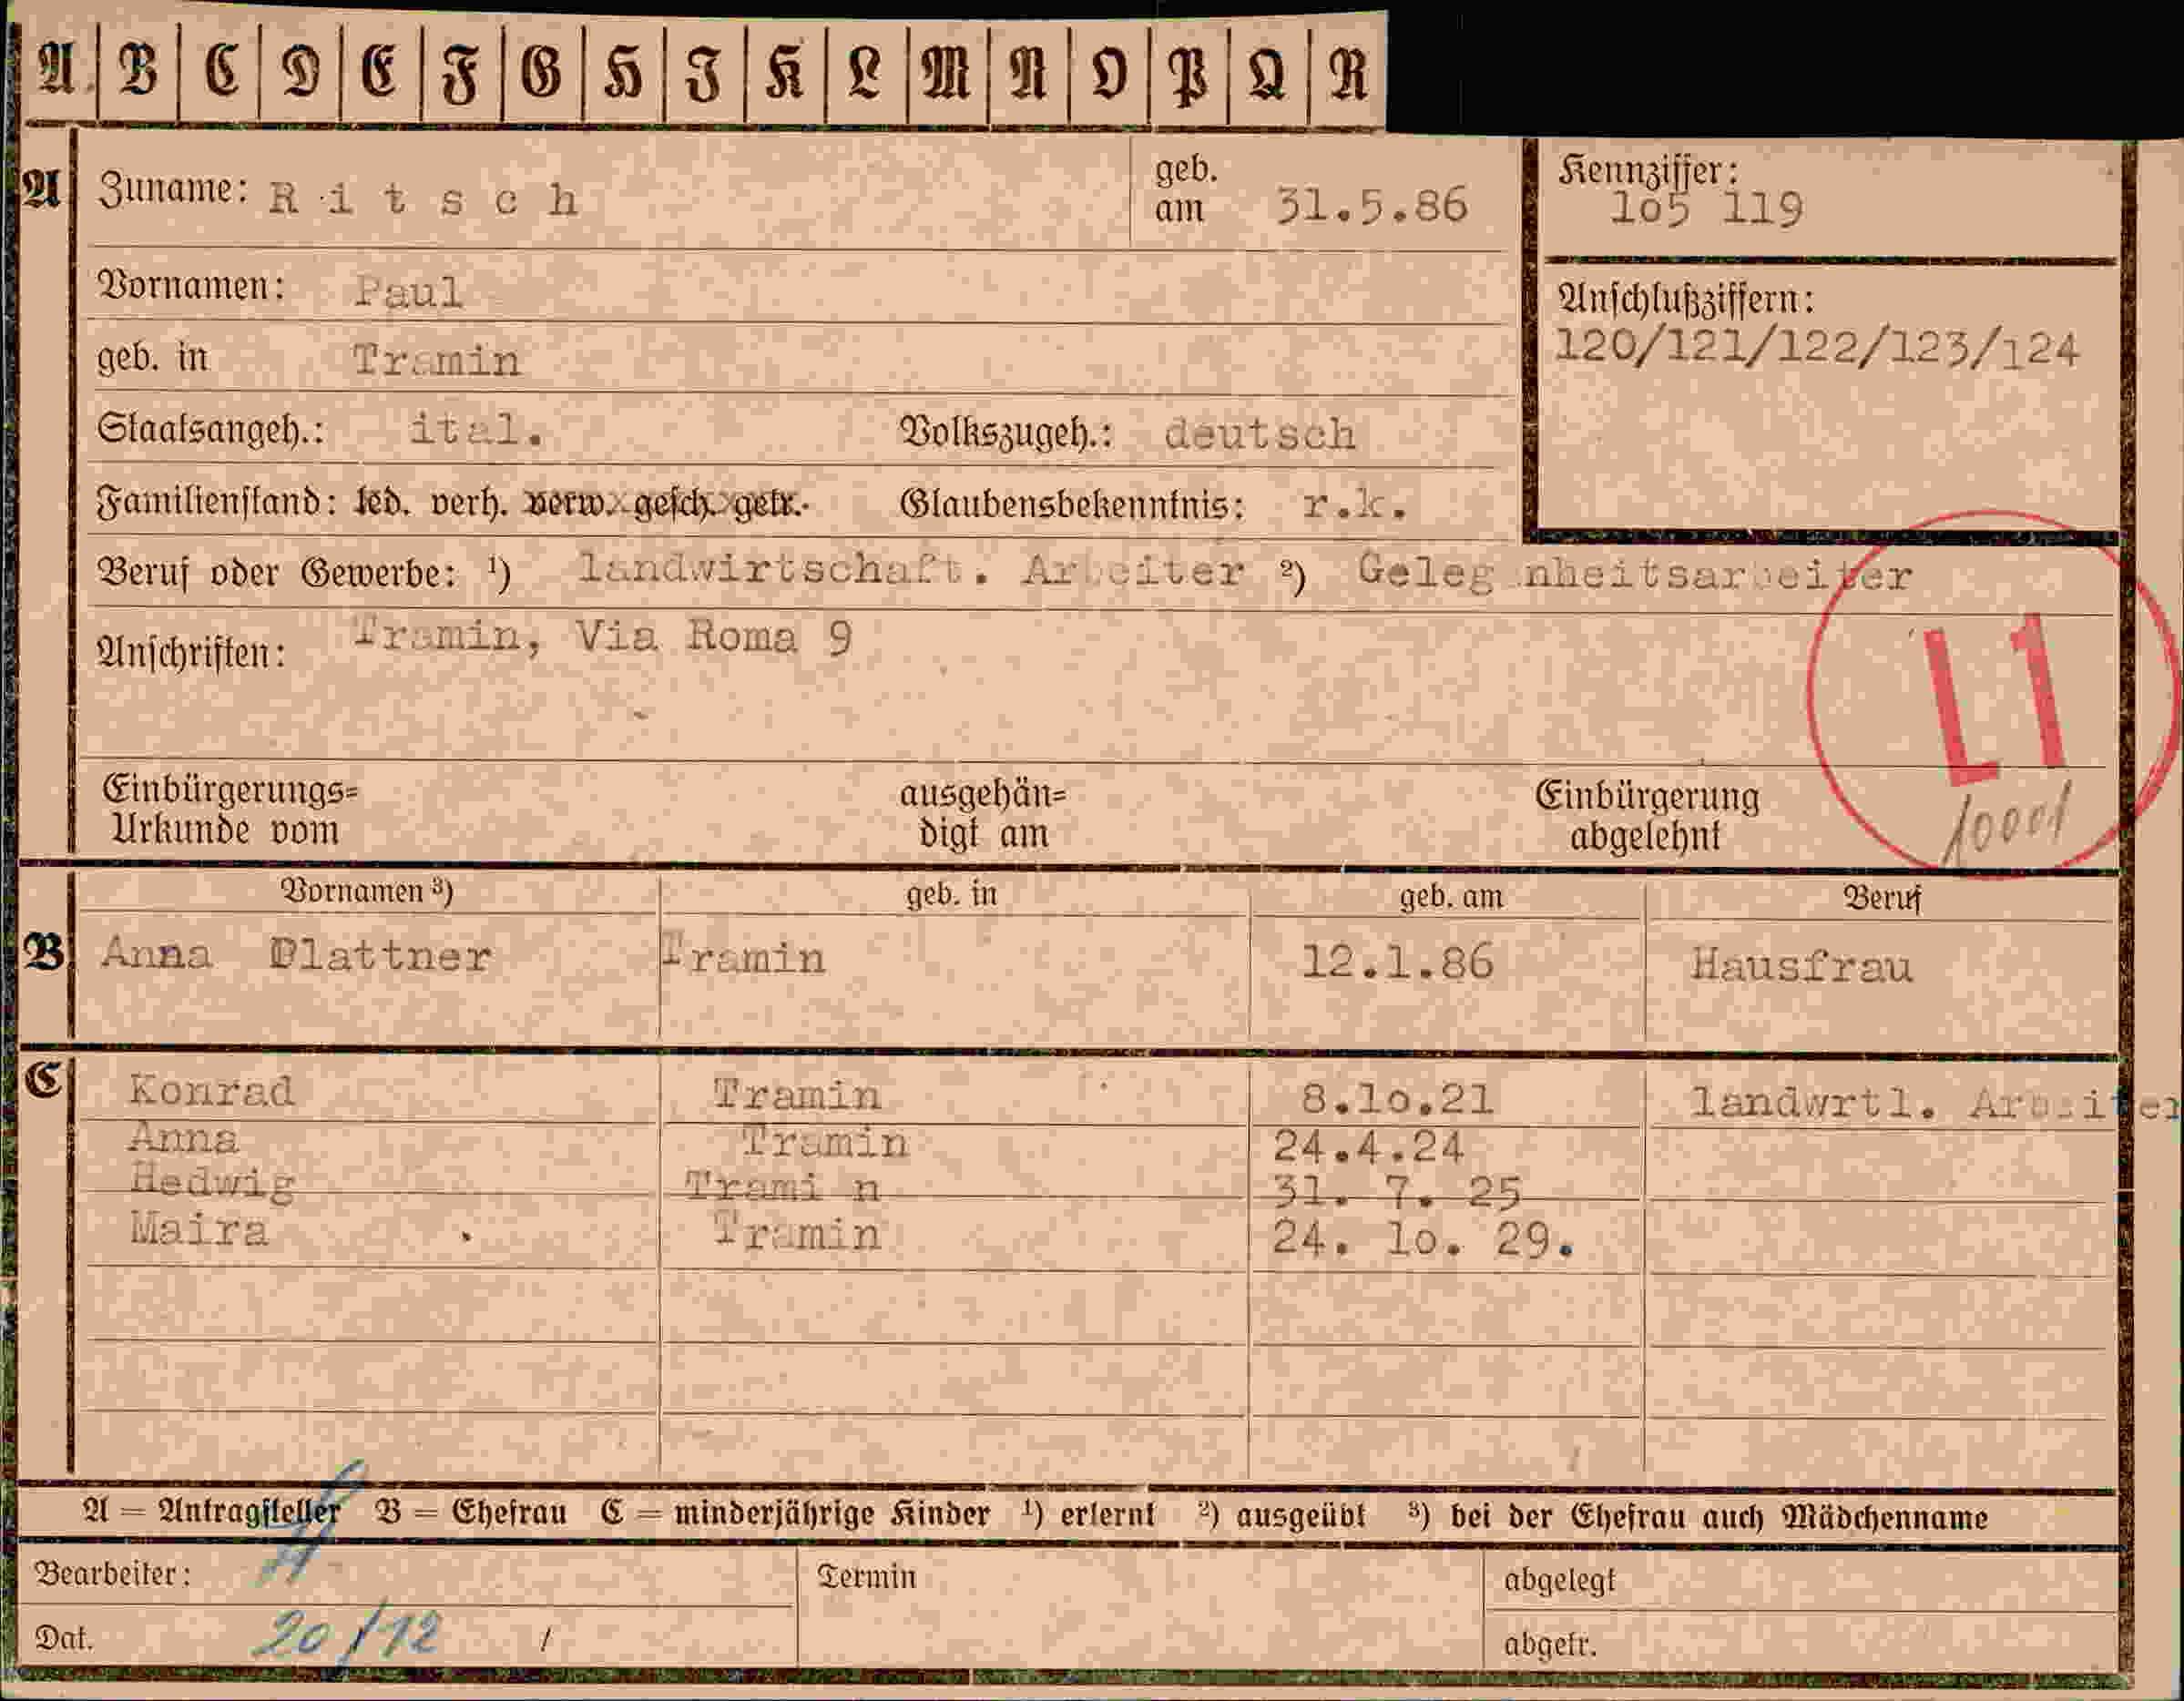 A B C D E F G H I K L M N O P Q R
A Zuname: R i t s c h geb. am 31.5.86
Kennziffer: 1o5 119
Vornamen: Paul
Anschlußziffern: 120/121/122/123/124
geb. in Tramin
Staatsangeh.: ital. Volkszugeh.: deutsch
Familienstand: led. verh. verw. gesch. getr. Glaubensbekenntnis: r.k.
Beruf oder Gewerbe: ¹) landwirtschaft. Arbeiter ²) Gelegenheitsarbeiter
Anschriften: Tramin, Via Roma 9
L1
10001
Einbürgerungs= ausgehän= Einbürgerung
Urkunde vom digt am abgelehnt
Vornamen ³) geb. in geb. am Beruf
B Anna Plattner Tramin 12.1.86 Hausfrau
C Konrad Tramin 8.1o.21 landwrtl. Arbeiter
Anna Tramin 24.4.24
Hedwig Trami n 31. 7. 25
Maira Tramin 24. 1o. 29.
A = Antragsteller B = Ehefrau C = minderjährige Kinder ¹) erlernt ²) ausgeübt ³) bei der Ehefrau auch Mädchenname
Bearbeiter: Termin abgelegt
Dat. 20/12 / abgetr.